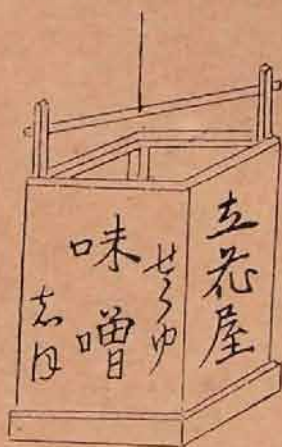 立花屋
せうゆ
味噌
志ほ